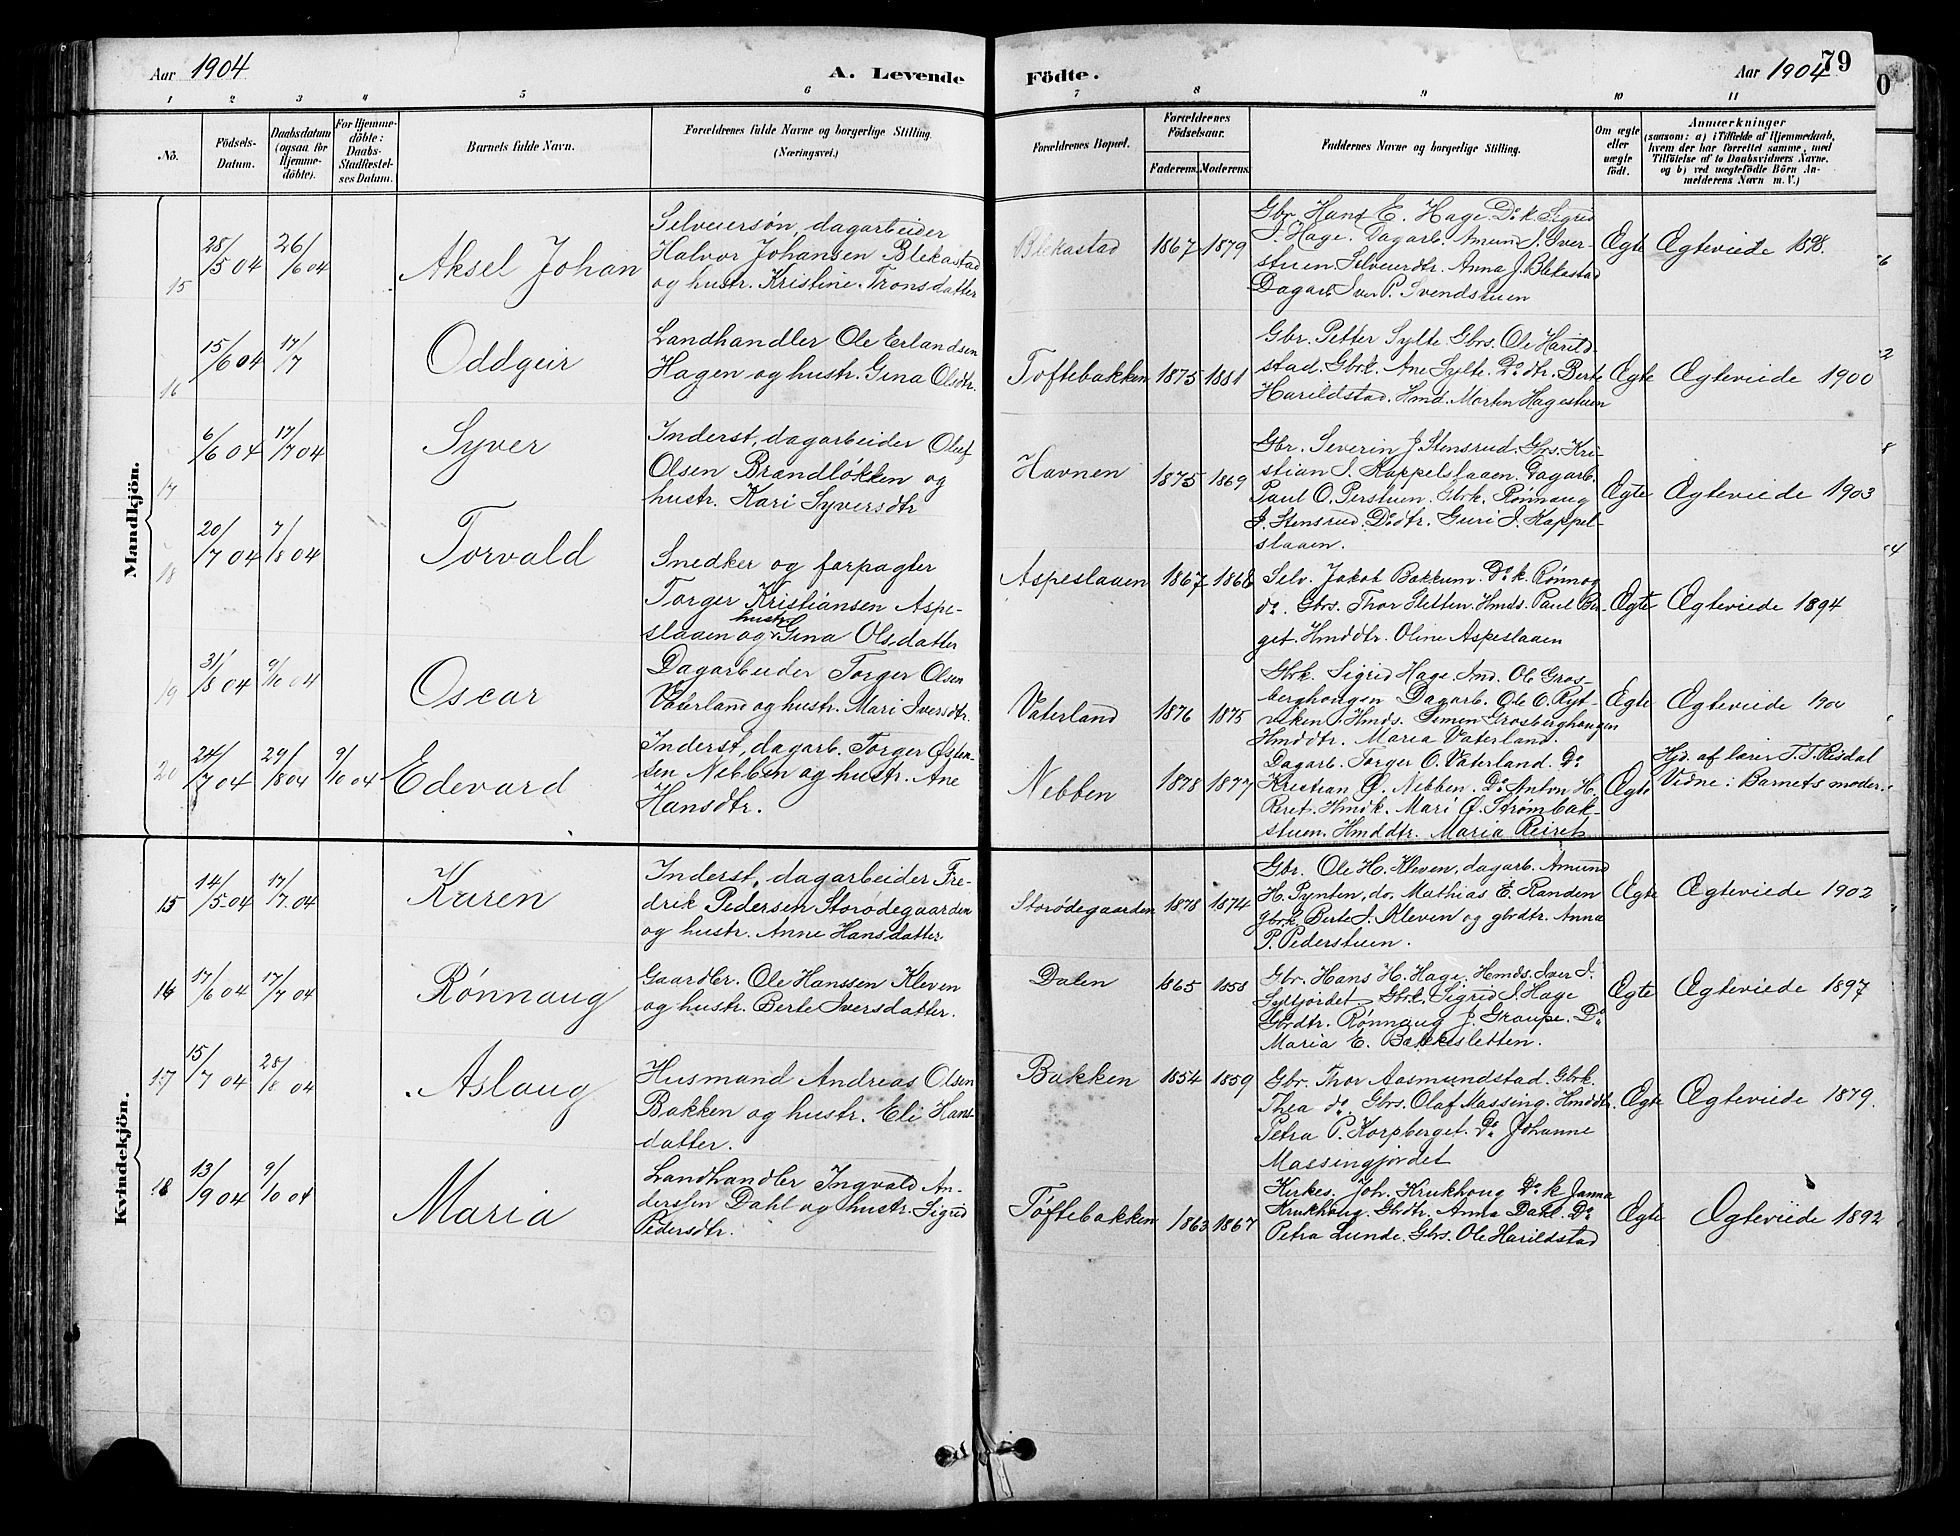 Aar 1904
A. Levende
Födte.
Aar 1904
79
1 2 3 4 5 6 7 8 9 10 11
Nö.
Födsels-
Datum.
Daabsdatum
(ogsaa för
Hjemme-
döbte).
For Hjemme-
döbte:
Daabs-
Stadfæstel-
ses Datum.
Barnets fulde Navn.
Forældrenes fulde Navne og borgerlige Stilling.
(Næringsvei.)
Forældrenes Bopæl.
Forældrenes
Födselsaar.
Faderens.
Moderens.
Faddernes Navne og borgerlige Stilling.
Om ægte
eller
uægte
födt.
Anmærkninger
(saasom: a) i Tilfælde af Hjemmedaab,
hvem der har forrettet samme, med
Tilföielse af to Daabsvidners Navne,
og b) ved uægtefödte Börn An-
melderens Navn m. V.)
Mandkjön.
15
28/5 04
26/6 04
Aksel Johan
Selveiersøn, dagarbeider
Halvor Johansen Blekastad
og hustr. Kristine Tronsdatter
Blekastad
1867
1879
Gbr. Hans E. Hage. Do k. Sigrid
J. Hage. Dagarb. Amund J. Iver-
stuen. Selveierdtr. Anna J. Blekastad
Dagarb Iver P. Svendstuen
Ægte
Ægteviede 1898.
16
15/6 04
17/7
Oddgeir
Landhandler Ole Erlandsen
Hagen og hustr. Gina Olsdtr.
Toftebakken
1875
1881
Gbr. Petter Sylte. Gbrs. Ole Harild-
stad. Gbrk. Ane Sylte. Do dtr. Berte
Harildstad. Hmd. Morten Hagestuen
Ægte
Ægteviede 1900
17
6/6 04
17/7 04
Syver
Inderst, dagarbeider Oluf
Olsen Brændløkken og
hustr. Kari Syversdtr
Havnen
1875
1869
Gbr. Severin J. Stensrud. Gbrs. Kri-
stian J. Kappelslaaen. Dagarb.
Paul O. Perstuen. Gbrk. Rønnaug
J. Stensrud. Do dtr. Guri J. Kappel-
slaaen.
Ægte
Ægteviede 1903
18
20/7 04
7/8 04
Torvald
Snedker og forpagter
Torger Kristiansen Aspe-
slaaen og hustr Gina Olsdatter
Aspeslaaen
1867
1868
Selv. Jakob Bakkum. Do k. Rönnog
do. Gbrs. Thor Sletten. Hmds. Paul Ber-
get. Hmddtr. Oline Aspeslaaen
Ægte
Ægteviede 1894
19
31/8 04
9/10 04
Oscar
Dagarbeider Torger Olsen
Vaterland og hustr. Mari Iversdtr.
Vaterland
1876
1875
Gbrk. Sigrid Hage. Ind. Ole Gros-
berghougen Dagarb. Ole O. Ryt-
viken. Hmds. Simen Grosberghougen
Hmddtr. Maria Vaterland.
Ægte
Ægteviede 1900
20
24/7 04
29/8 04
9/10 04
Edevard
Inderst, dagarb. Torger Østen-
sen Nebben og hustr. Ane
Hansdtr.
Nebben
1878
1877
Dagarb. Torger O. Vaterland. Do
Kristian Ø. Nebben. Do Anton H.
Reiret. Hmdk. Mari Ø. Strømbak-
stuen. Hmddtr. Maria Reiret
Ægte
Hjd. af lærer T. T. Risdal
Vidne: Barnets moder.
Kvindekjön.
15
14/5 04
17/7 04
Karen
Inderst, dagarbeider Fre-
drik Pedersen Storødegaarden
og hustr. Anne Hansdatter
Storødegaarden
1878
1874
Gbr. Ole H. Kleven, dagarb. Amund
H. Pynten, do. Mathias E. Randen
gbrk. Berte J. Kleven og gbrdtr. Anna
P. Pederstuen.
Ægte
Ægteviede 1902
16
17/6 04
17/7 04
Rønnaug
Gaardbr. Ole Hanssen Kleven
og hustr. Berte Iversdatter.
Dalen
1865
1858
Gbr. Hans H. Hage. Hmds. Iver I.
Syltjordet. Gbrk. Sigrid J. Hage
Gbrdtr. Rønnaug J. Graupe. Do
Maria E. Bakkesletten.
Ægte
Ægteviede 1897
17
15/7 04
28/8 04
Aslaug
Husmand Andreas Olsen
Bakken og hustr. Eli Hans-
datter.
Bakken
1854
1859
Gbr. Thor Aasmundstad. Gbrk.
Thea do. Gbrs. Olaf Massing. Hmddtr.
Petra P. Korpberget. Do Johanne
Massingjordet
Ægte
Ægteviede 1879.
18
13/9 04
9/10 04
Maria
Landhandler Ingvald An-
dersen Dahl og hustr. Sigrid
Pedersdtr.
Toftebakken
1863
1867
Kirkes. Joh. Krukhoug. Do k Janna
Krukhoug. Gbdtr. Anna Dahl. Do
Petra Lunde. Gbrs. Ole Harildstad
Ægte
Ægteviede 1892